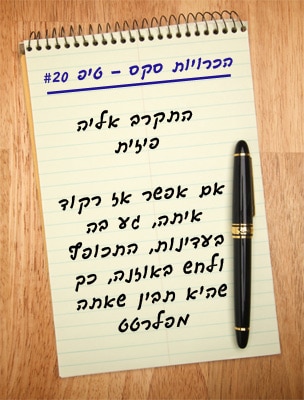 הכרויות סקס – טיפ #20
התקרב אליה
פיזית
אם אפשר אז רקוד
איתה, גע בה
בעדינות, התכופף
ולחש באוזנה, כך
שהיא תבין שאתה
מפלרטט